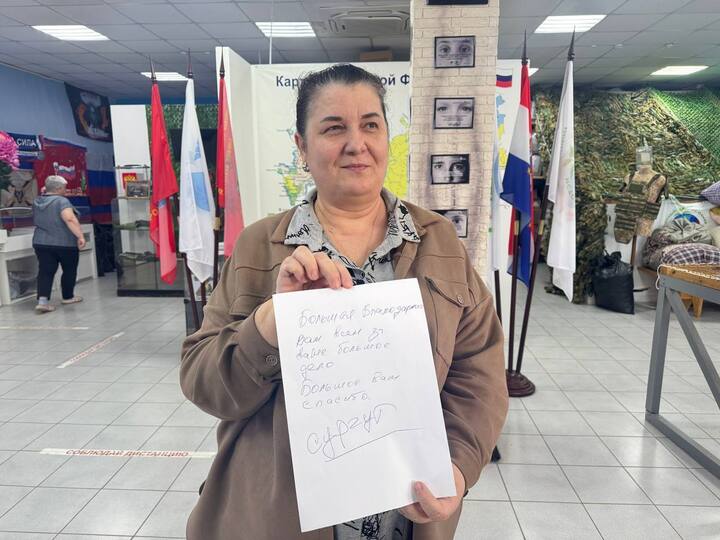 Карт
ой Ф
СИЛА
Большая Благодарность
Вам всем за
Ваше большое
дело
Большое Вам
спасибо
Сургут
СОБЛЮДАЙ ДИСТАНЦИЮ